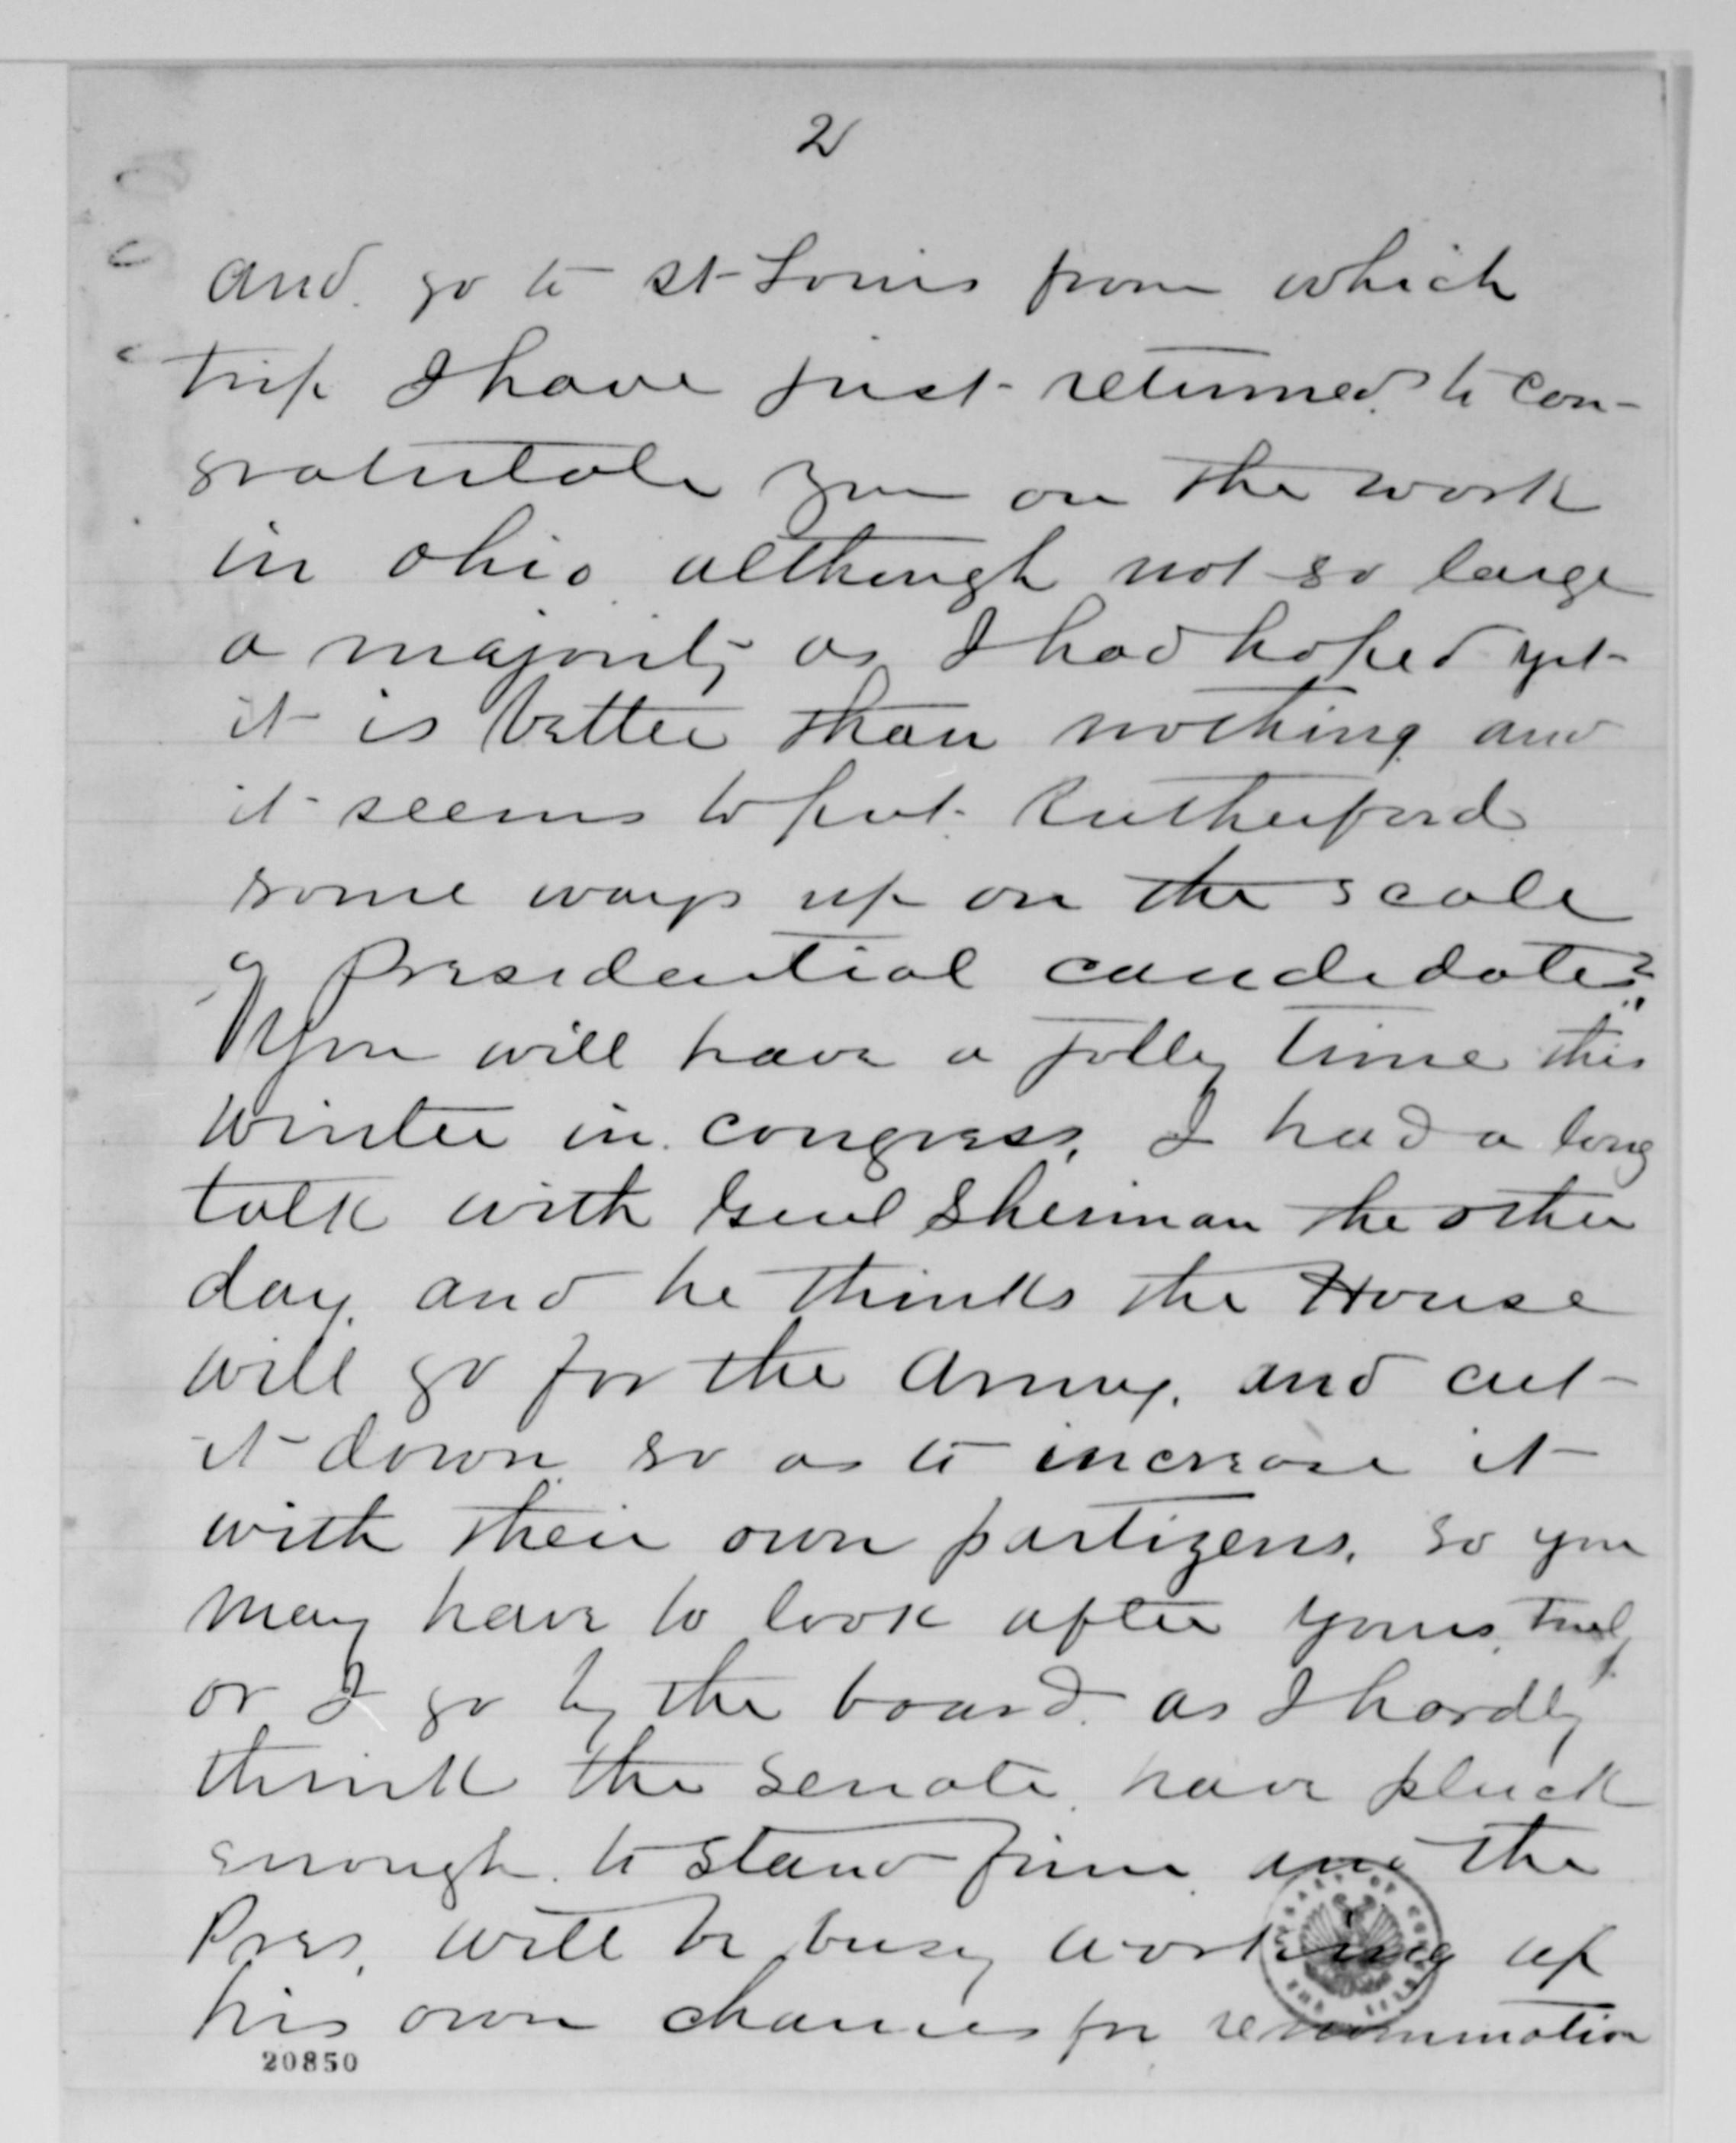 2
and go to St Louis from which
trip I have just returned to con-
gratulate you on the work
in Ohio although not so large
a majority as I had hoped yet
it is better than nothing and
it seems to put Rutherford
some ways up on the scale
of Presidential candidates
You will have a jolly time this
winter in congress, I had a long
talk with Genl Sherman the other
day, and he thinks the House
will go for the Army, and cut
it down so as to increase it
with their own partizens, so you
may have to look after yours truly
or I go by the board as I hardly
think the Senate have pluck
enough to stand firm and the
Pres, will be busy working up
his own chances for renomination
20850